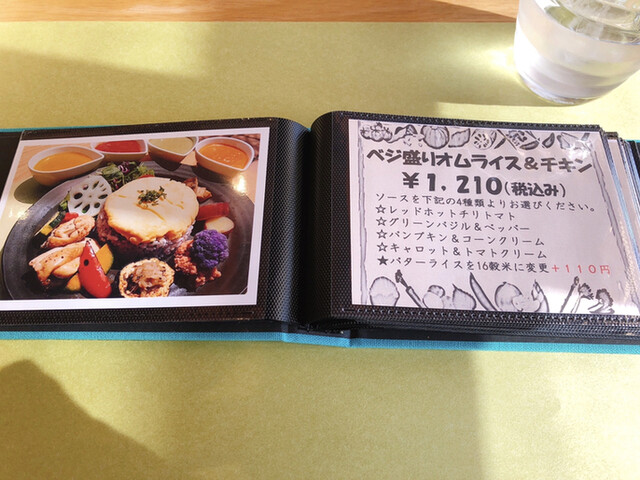 ベジ盛りオムライス&チキン
¥1,210(税込み)
ソースを下記の4種類よりお選びください。
☆レッドホットチリトマト
☆グリーンバジル&ペッパー
☆パンプキン&コーンクリーム
☆キャロット&トマトクリーム
★バターライスを16穀米に変更+110円